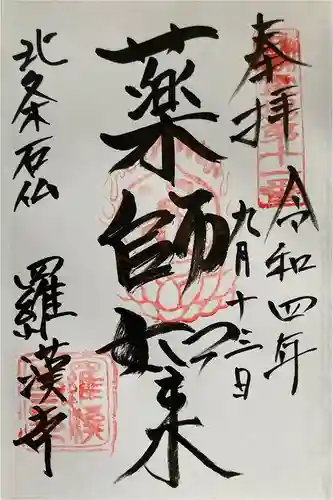 奉拝
令和四年
九月十三日
薬師如来
北条石仏
羅漢寺